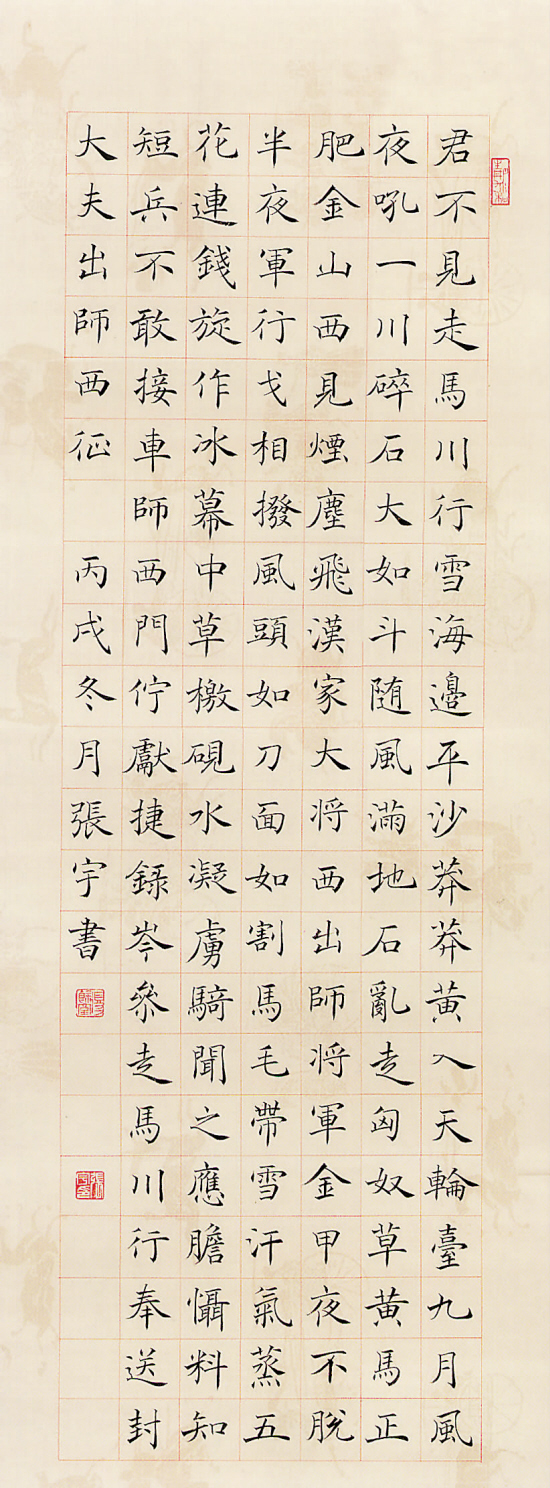 君不見走馬川行雪海邊平沙莽莽黃入天輪臺九月風
夜吼一川碎石大如斗随風滿地石亂走匈奴草黃馬正
肥金山西見煙塵飛漢家大将西出師将軍金甲夜不脫
半夜軍行戈相撥風頭如刀面如割馬毛帶雪汗氣蒸五
花連錢旋作冰幕中草檄硯水凝虜騎聞之應膽懾料知
短兵不敢接車師西門佇獻捷錄岑參走馬川行奉送封
大夫出師西征 丙戌冬月張宇書